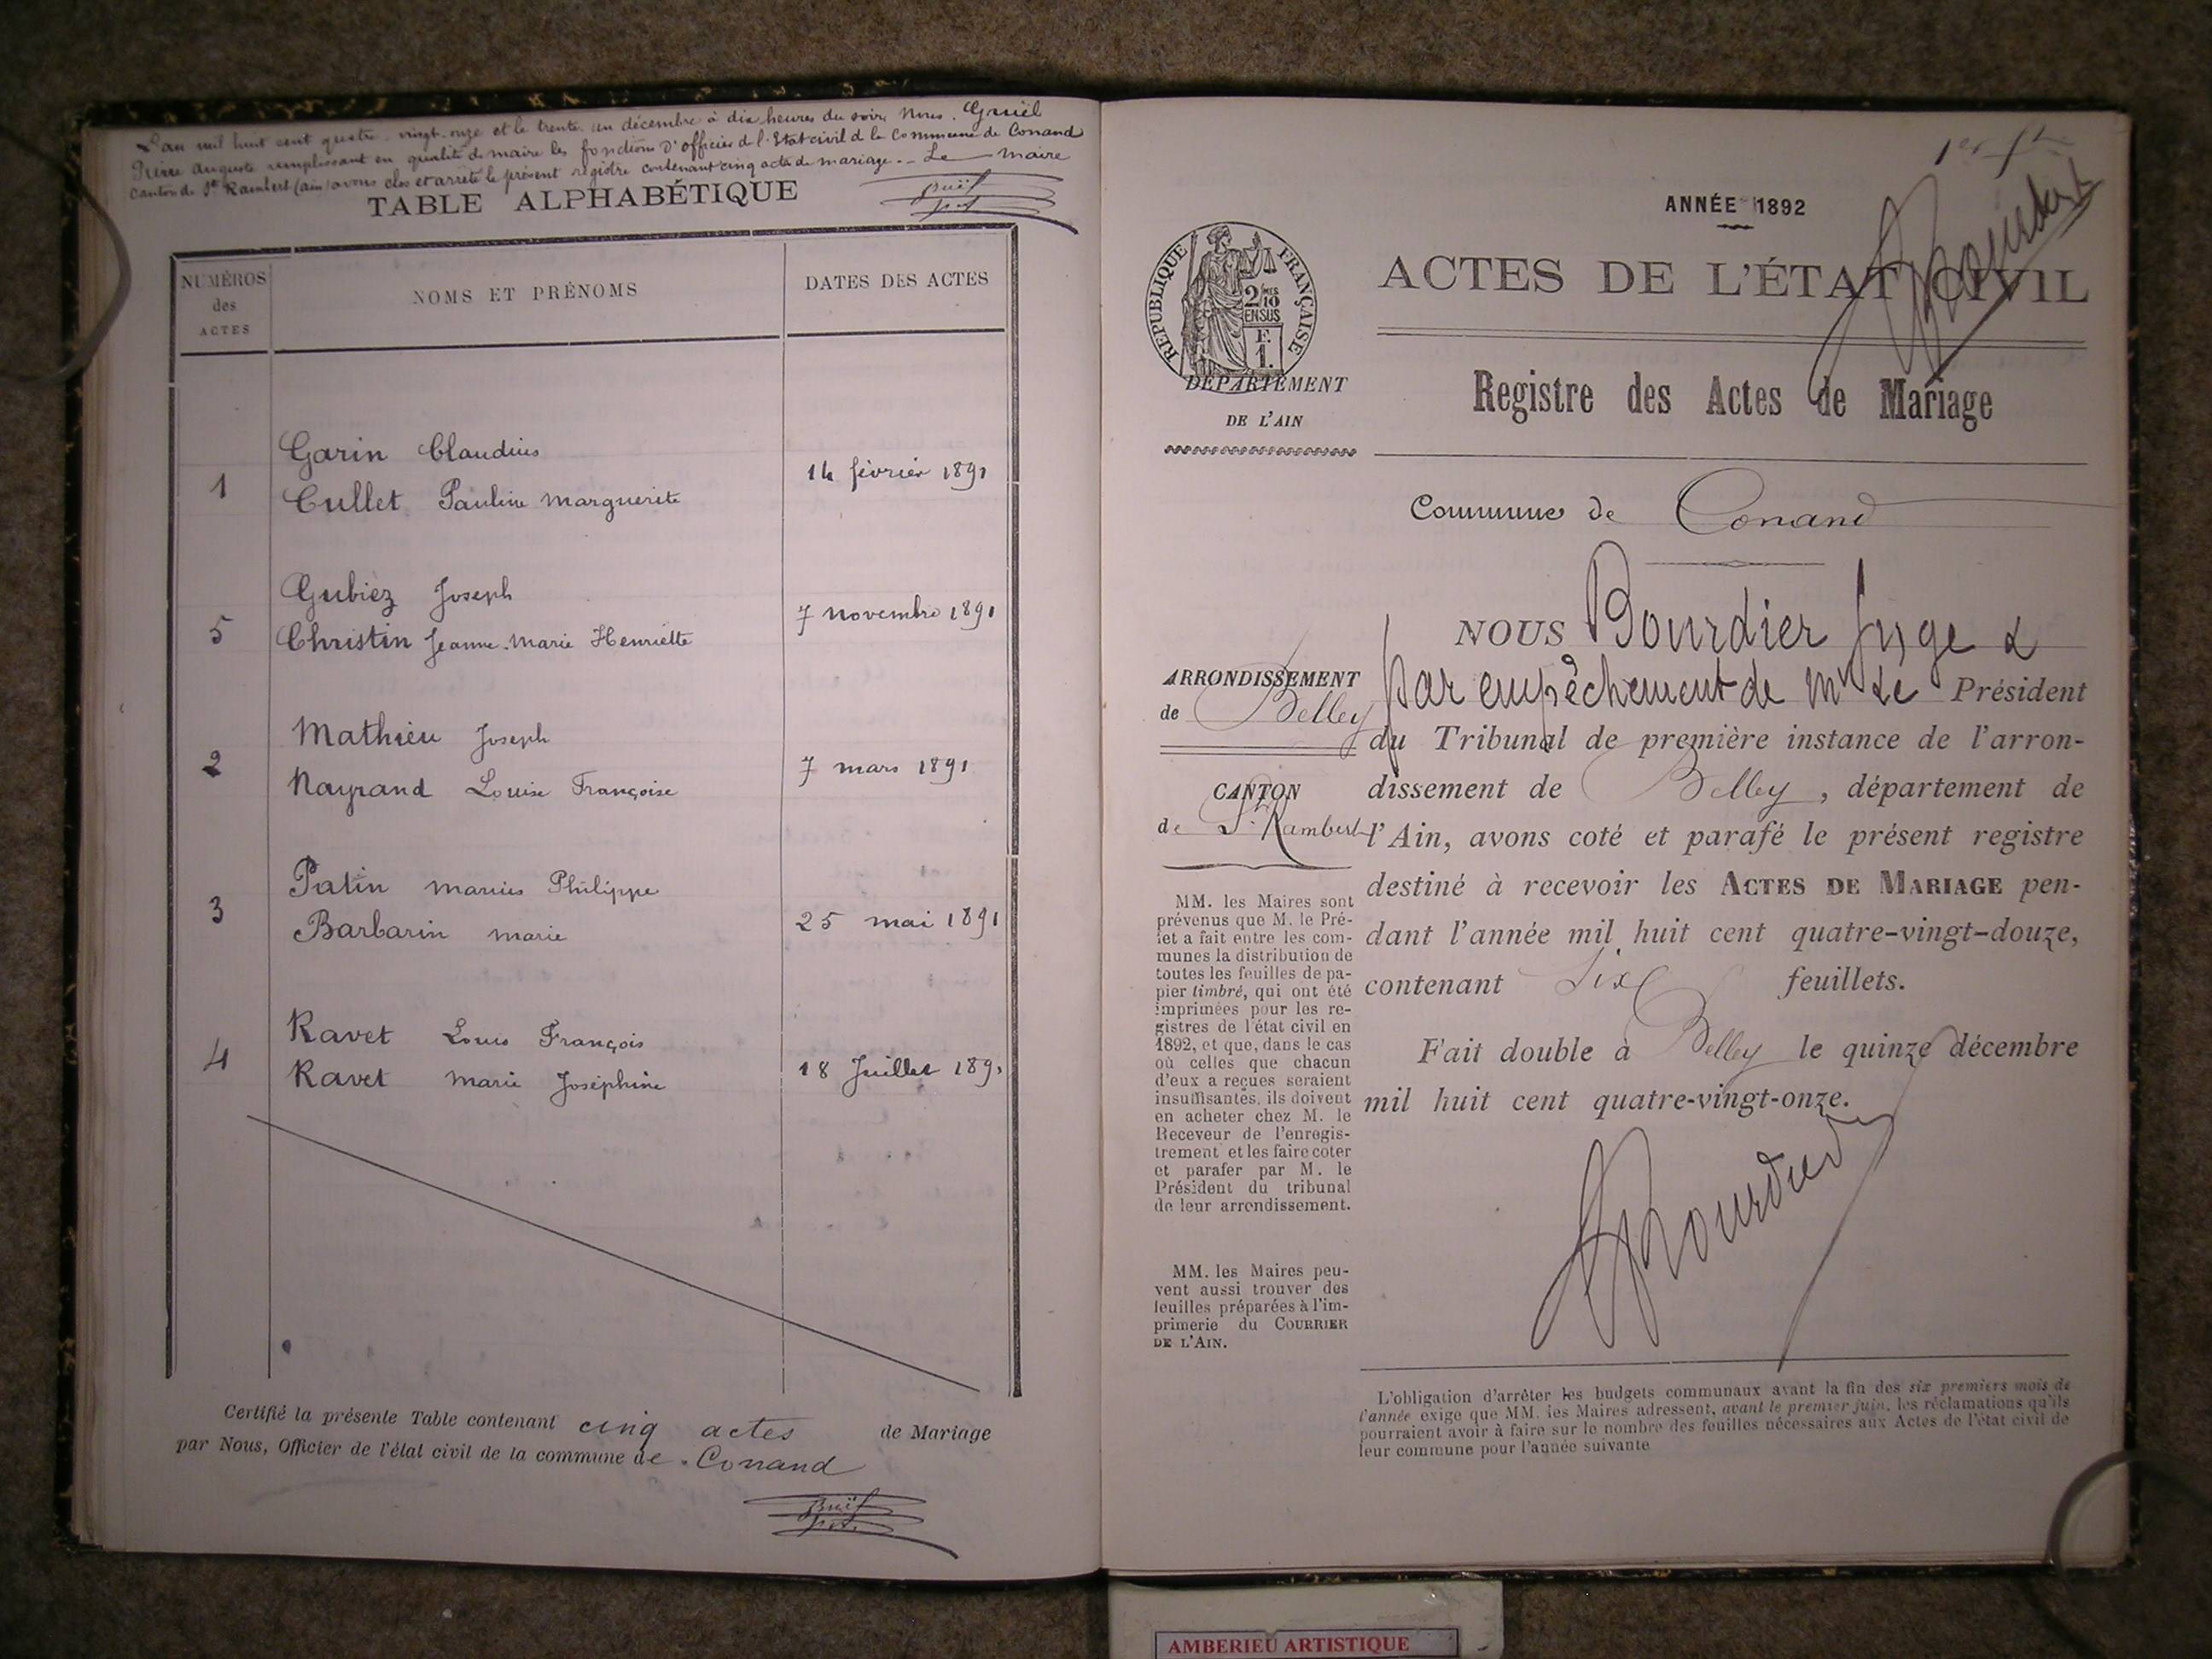 L'an mil huit cent quatre-vingt-onze et le trente un décembre à dix heures du soir, Nous, Gruël
Pierre Auguste remplissant en qualité de maire les fonctions d'officier de l'Etat civil de la Commune de Conand
canton de St Rambert (ain) avons clos et arrêté le présent registre contenant cinq actes de mariage. - Le maire
TABLE ALPHABÉTIQUE
NUMÉROS des ACTES
NOMS ET PRÉNOMS
DATES DES ACTES
1
Garin Claudius
Cullet Pauline Marguerite
14 février 1891
5
Gubiez Joseph
Christin Jeanne-Marie Henriette
7 novembre 1891
2
Mathieu Joseph
Nayrand Louise Françoise
7 mars 1891
3
Patin marius Philippe
Barbarin marie
25 mai 1891
4
Ravet Louis François
Ravet marie Joséphine
18 Juillet 1891
Certifié la présente Table contenant cinq actes de Mariage
par Nous, Officier de l'état civil de la commune de Conand
1er
ANNÉE 1892
Bourdier
RÉPUBLIQUE FRANÇAISE
2/10
EN SUS
F.
1.
ACTES DE L'ÉTAT CIVIL
DÉPARTEMENT
DE L'AIN
Registre des Actes de Mariage
Commune de Conand
ARRONDISSEMENT
de Belley
CANTON
de St Rambert
MM. les Maires sont
prévenus que M. le Pré-
fet a fait entre les com-
munes la distribution de
toutes les feuilles de pa-
pier timbré, qui ont été
imprimées pour les re-
gistres de l'état civil en
1892, et que, dans le cas
où celles que chacun
d'eux a reçues seraient
insuffisantes, ils doivent
en acheter chez M. le
Receveur de l'enregis-
trement et les faire coter
et parafer par M. le
Président du tribunal
de leur arrondissement.
MM. les Maires peu-
vent aussi trouver des
feuilles préparées à l'im-
primerie du COURRIER
DE L'AIN.
NOUS Bourdier Juge
par empêchement de Mr Le Président
du Tribunal de première instance de l'arron-
dissement de Belley, département de
l'Ain, avons coté et parafé le présent registre
destiné à recevoir les ACTES DE MARIAGE pen-
dant l'année mil huit cent quatre-vingt-douze,
contenant Six feuillets.
Fait double à Belley le quinze décembre
mil huit cent quatre-vingt-onze.
Bourdier
L'obligation d'arrêter les budgets communaux avant la fin des six premiers mois de
l'année exige que MM. les Maires adressent, avant le premier juin, les réclamations qu'ils
pourraient avoir à faire sur le nombre des feuilles nécessaires aux Actes de l'état civil de
leur commune pour l'année suivante
AMBERIEU ARTISTIQUE